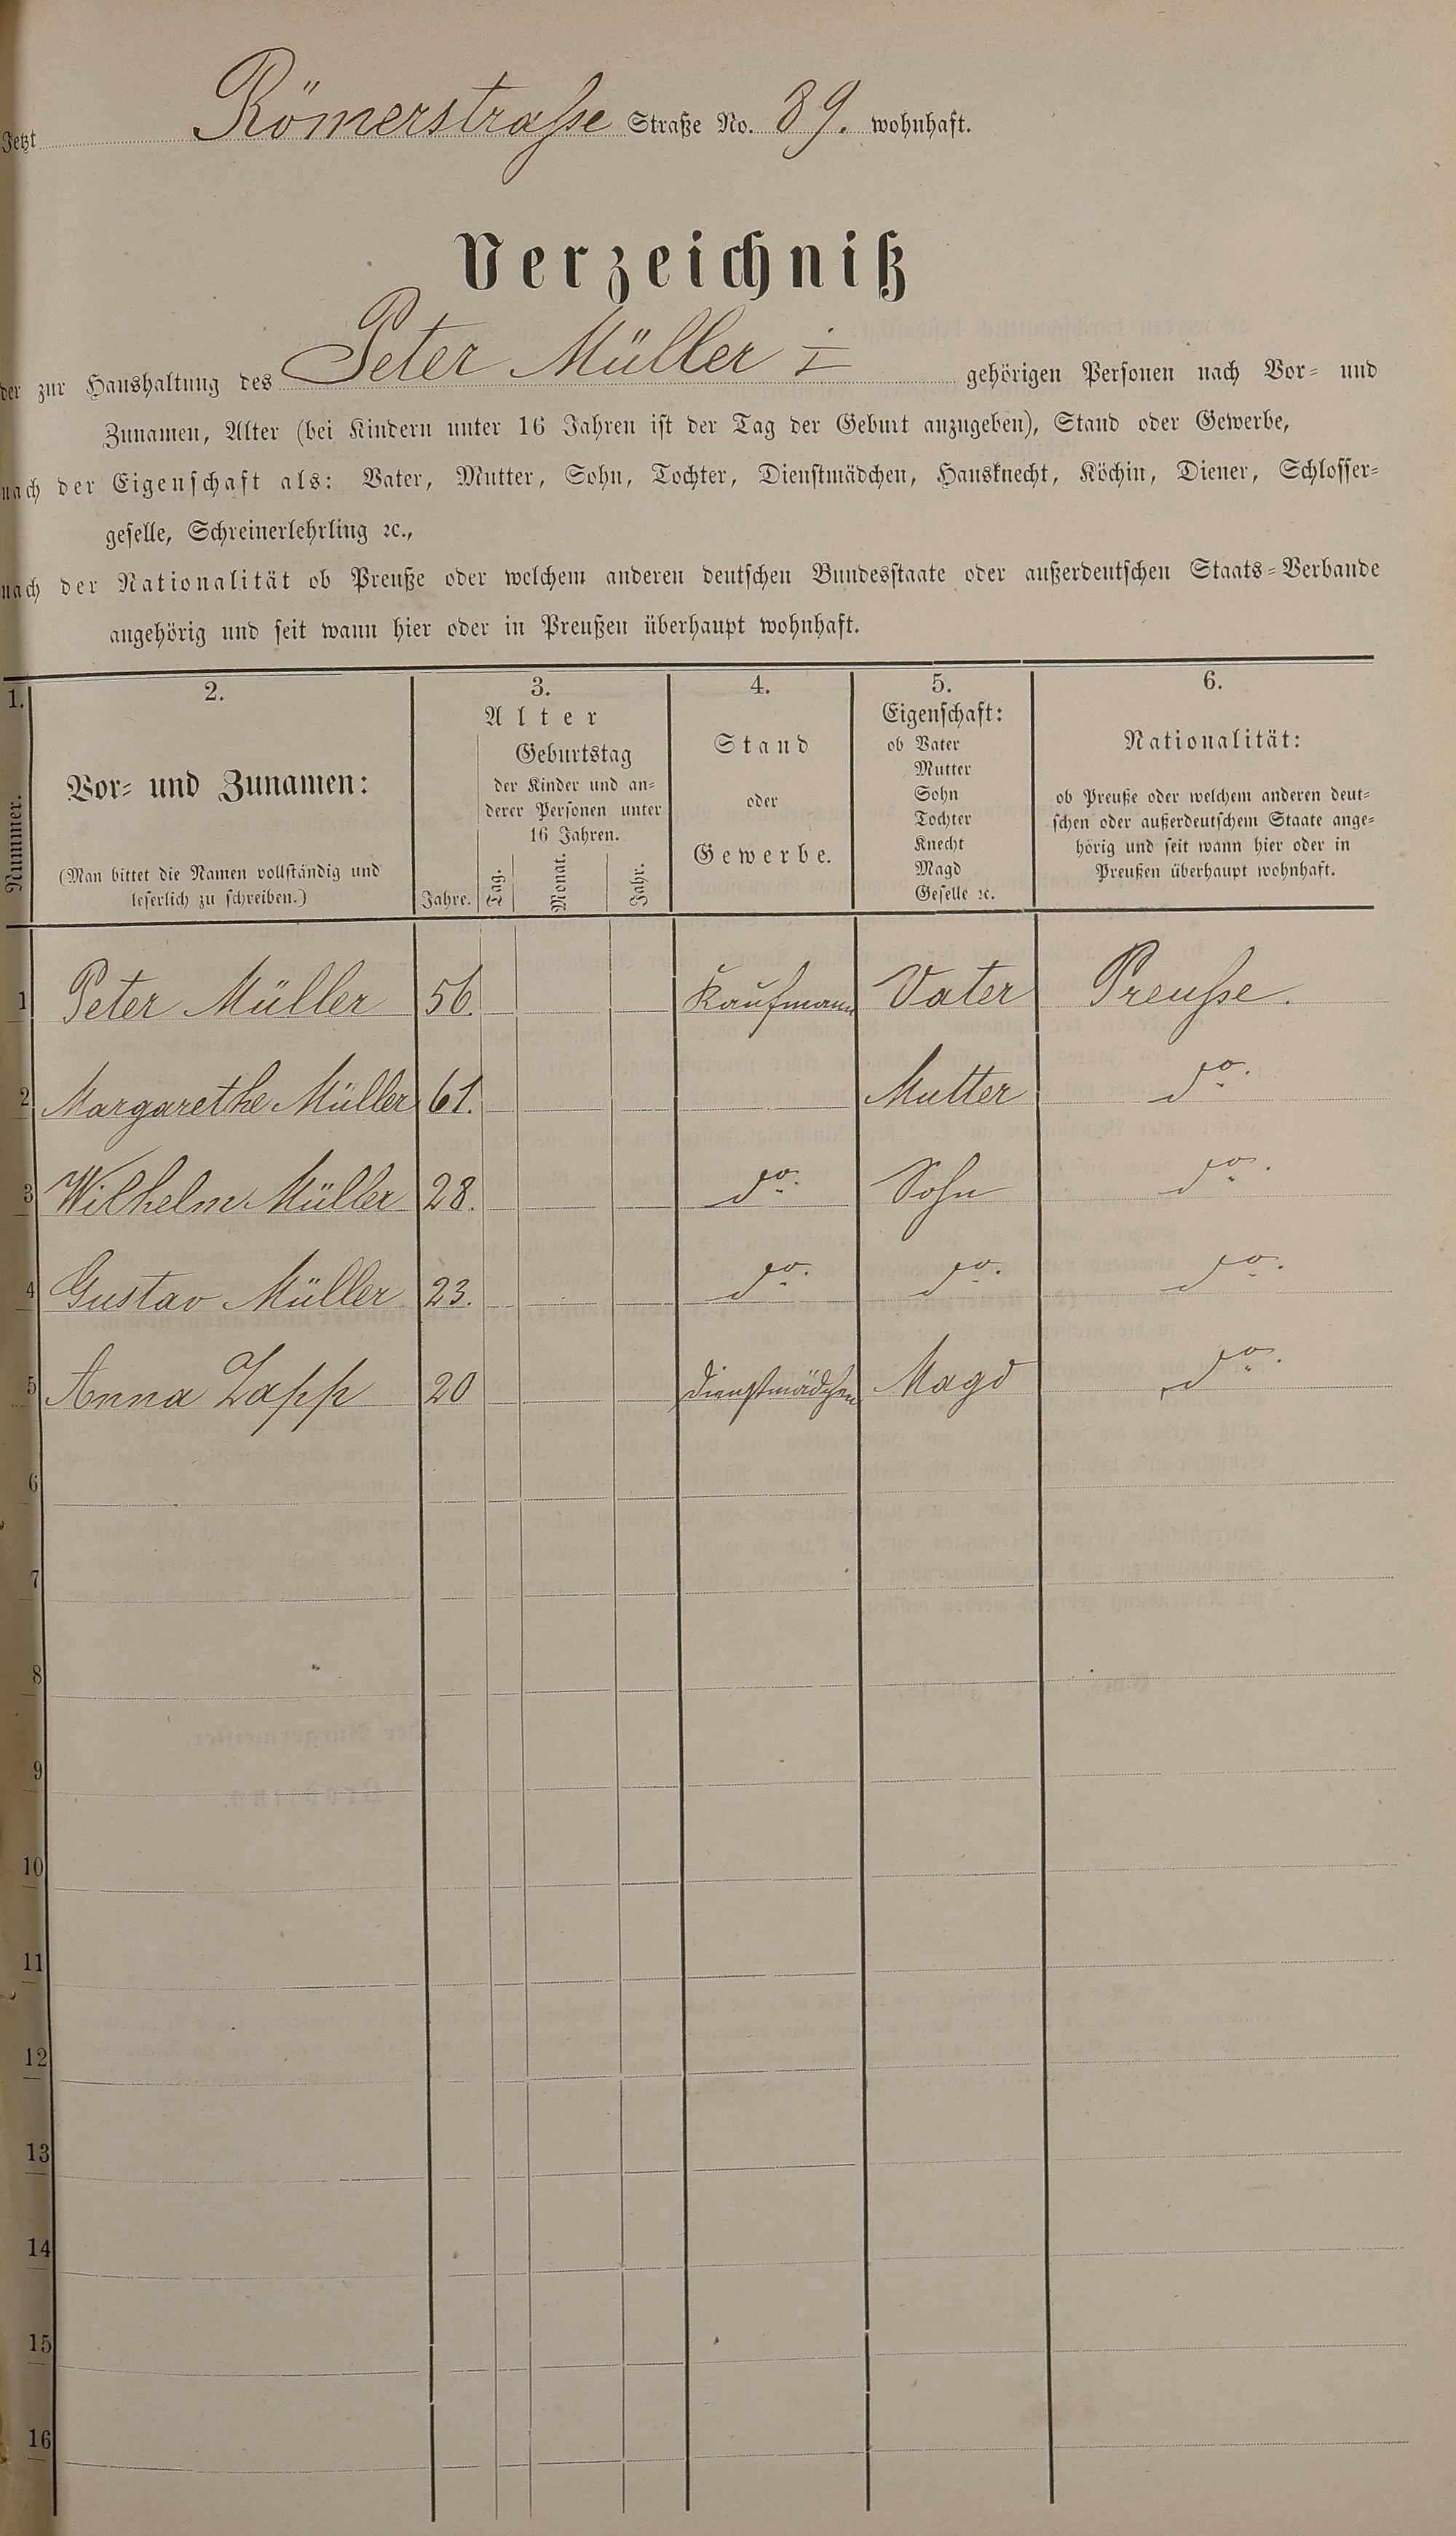 Jetzt Römerstraße Straße No. 39. wohnhaft.
Verzeichniß
der zur Haushaltung des Peter Müller I gehörigen Personen nach Vor- und
Zunamen, Alter (bei Kindern unter 16 Jahren ist der Tag der Geburt anzugeben), Stand oder Gewerbe,
nach der Eigenschaft als: Vater, Mutter, Sohn, Tochter, Dienstmädchen, Hausknecht, Köchin, Diener, Schlosser-
geselle, Schreinerlehrling ꝛc.,
nach der Nationalität ob Preuße oder welchem anderen deutschen Bundesstaate oder außerdeutschen Staats-Verbande
angehörig und seit wann hier oder in Preußen überhaupt wohnhaft.
1. 2. 3. 4. 5. 6.
Nummer.
Vor- und Zunamen:
(Man bittet die Namen vollständig und
leserlich zu schreiben.)
Alter
Geburtstag
der Kinder und an-
derer Personen unter
16 Jahren.
Jahre. Tag. Monat. Jahr.
Stand
oder
Gewerbe.
Eigenschaft:
ob Vater
Mutter
Sohn
Tochter
Knecht
Magd
Geselle ꝛc.
Nationalität:
ob Preuße oder welchem anderen deut-
schen oder außerdeutschem Staate ange-
hörig und seit wann hier oder in
Preußen überhaupt wohnhaft.
1 Peter Müller 56. Kaufmann Vater Preuße.
2 Margarethe Müller 61. Mutter do.
3 Wilhelm Müller 28. do. Sohn do.
4 Gustav Müller 23. do. do. do.
5 Anna Zapp 20 Dienstmädchen Magd do.
6
7
8
9
10
11
12
13
14
15
16